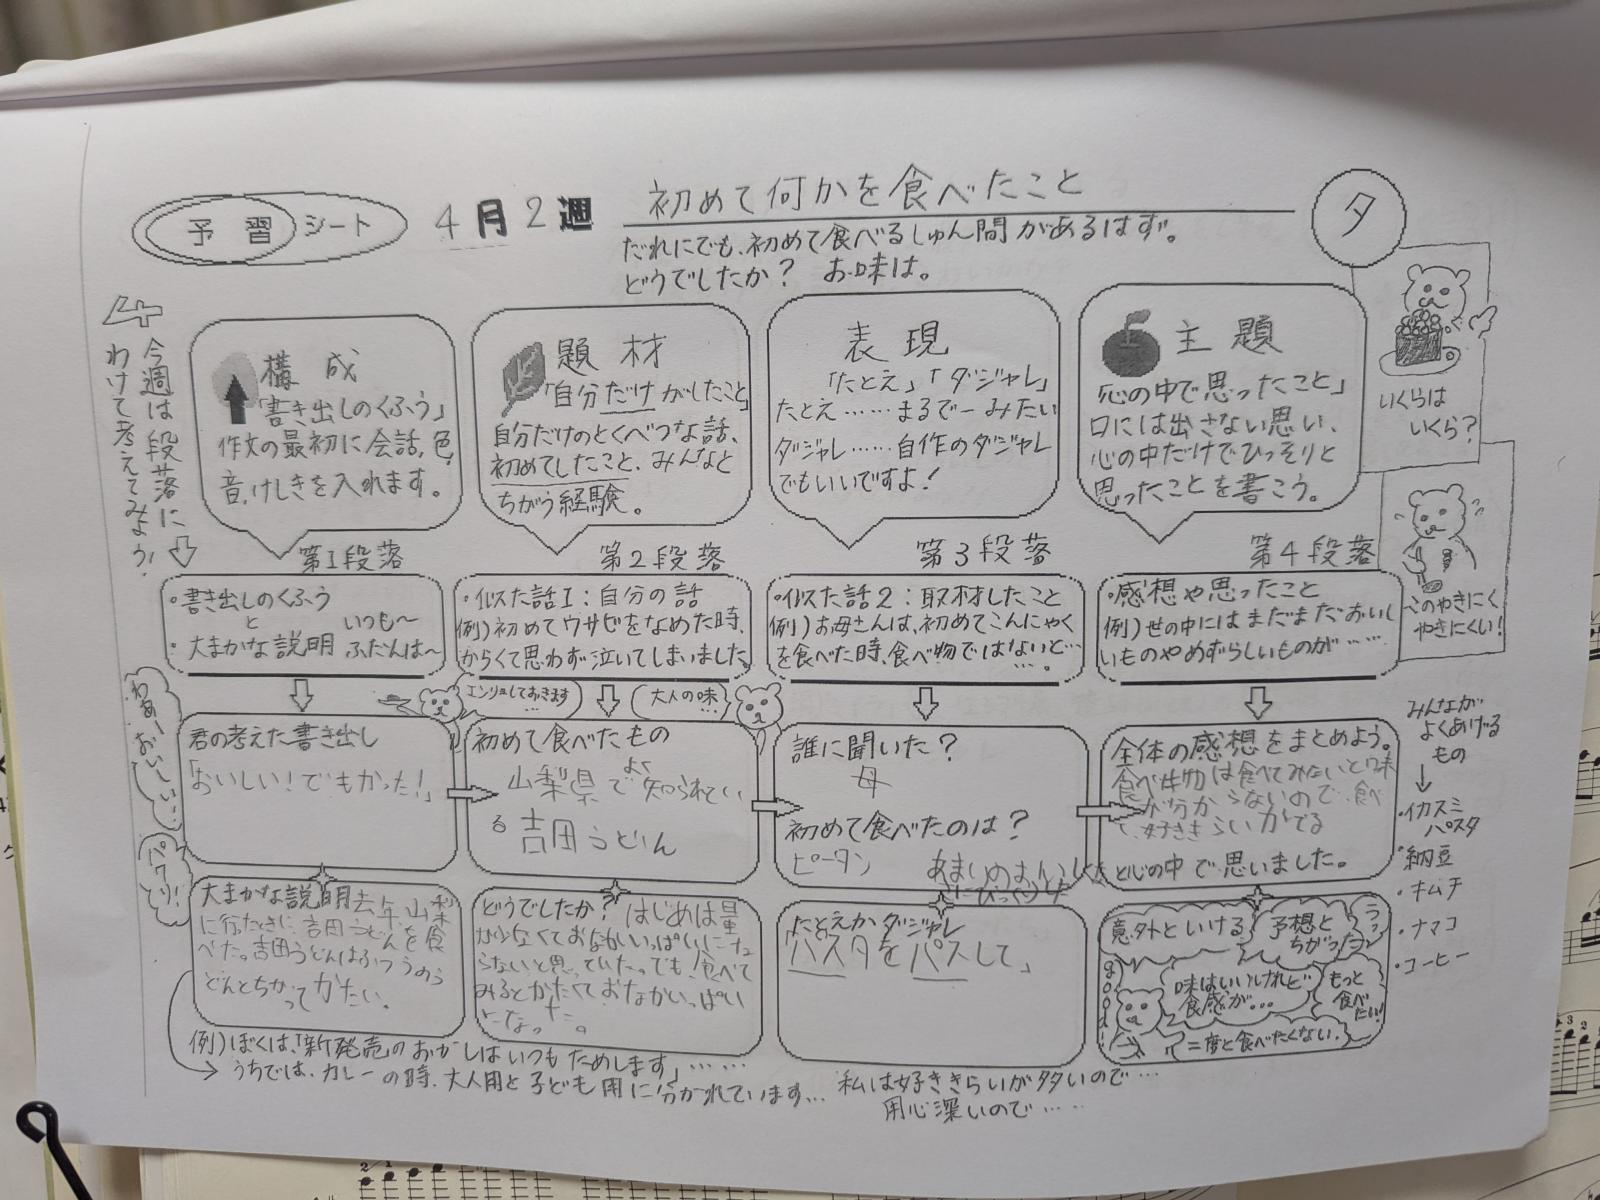 予習シート
4月2週
初めて何かを食べたこと
だれにでも、初めて食べるしゅん間があるはず。
どうでしたか？ お味は。
タ
今週は段落に
わけて考えてみよう！
構成
「書き出しのくふう」
作文の最初に会話、色、
音、けしきを入れます。
題材
「自分だけがしたこと」
自分だけのとくべつな話、
初めてしたこと、みんなと
ちがう経験。
表現
「たとえ」「ダジャレ」
たとえ……まるでーみたい
ダジャレ……自作のダジャレ
でもいいですよ！
主題
「心の中で思ったこと」
口には出さない思い、
心の中だけでひっそりと
思ったことを書こう。
いくらは
いくら？
このやきにく
やきにくい！
第1段落
・書き出しのくふう
と
・大まかな説明
いつも〜
ふだんは〜
第2段落
・似た話1：自分の話
例）初めてワサビをなめた時、
からくて思わず泣いてしまいました。
第3段落
・似た話2：取材したこと
例）お母さんは、初めてこんにゃく
を食べた時、食べ物ではないと…
…。
第4段落
・感想や思ったこと
例）世の中にはまだまだおいし
いものやめずらしいものが……
わぁーおいしい…
パクリ！
エンリョしておきます
…
大人の味
…
君の考えた書き出し
「おいしい！でもかった！」
初めて食べたもの
山梨県でよく知られてい
る吉田うどん
誰に聞いた？
母
初めて食べたのは？
ピータン
全体の感想をまとめよう。
食べ物は食べてみないと味
が分からないので、食べ
て、好ききらいがでる
と心の中で思いました。
みんなが
よくあげる
もの
・イカスミ
パスタ
・納豆
・キムチ
・ナマコ
・コーヒー
大まかな説明 去年、山梨
に行たときに、吉田うどんを食
べた。吉田うどんはふつうのう
どんとちがってかたい。
どうでしたか？ はじめは量
が少なくておなかいっぱいにな
らないと思っていた。でも、食べて
みるとかたくておなかいっぱい
になった。
たとえかダジャレ
「パスタをパスして」
意外といける
予想と
ちがった
味はいいけれど
食感が…
もっと
食べ
たい！
good!
二度と食べたくない。
例）ぼくは、「新発売」のおかしはいつもためします」……
うちでは、カレーの時、大人用と子ども用に分かれています…
私は好ききらいが多いので…
用心深いので……